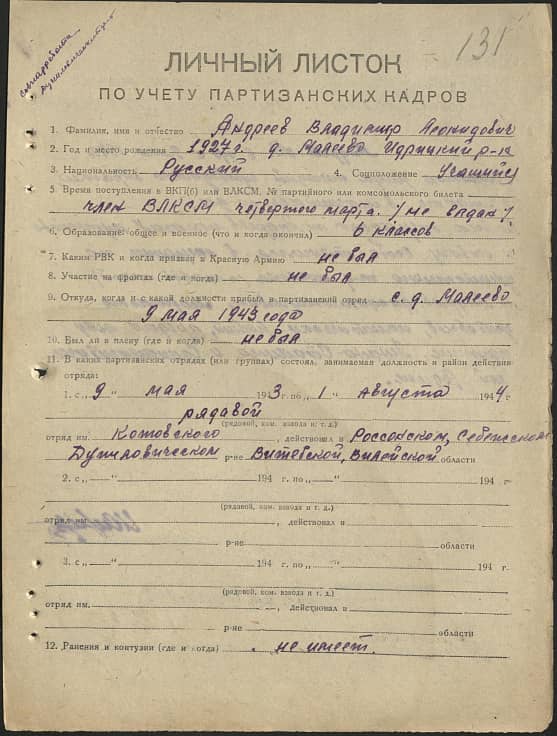 131
ЛИЧНЫЙ ЛИСТОК
ПО УЧЕТУ ПАРТИЗАНСКИХ КАДРОВ
1. Фамилия, имя и отчество Андреев Владимир Леонидович
2. Год и место рождения 1927 г. д. Малеево Идрицкий р-н
3. Национальность Русский 4. Соцположение Учащийся
5. Время поступления в ВКП(б) или ВЛКСМ, № партийного или комсомольского билета
член ВЛКСМ четвертого марта. / не выдан /
6. Образование: общее и военное (что и когда окончил) 6 классов
7. Каким РВК и когда призван в Красную Армию не был
8. Участие на фронтах (где и когда) не был
9. Откуда, когда и с какой должности прибыл в партизанский отряд с. д. Малеево
9 мая 1943 года
10. Был ли в плену (где и когда) не был
11. В каких партизанских отрядах (или группах) состоял, занимаемая должность и район действия
отряда:
1. с „ 9 " мая 1943 г. по „ 1 " Августа 1944 г.
рядавой
(рядовой, ком. взвода и т. д.)
отряд им. Котовского, действовал в Россонском, Себежском
Дуниловическом р-не Витебской, Вилейской области
2. с „ " 194 г. по „ " 194 г.
(рядовой, ком. взвода и т. д.)
отряд им. , действовал в
р-не области
3. с „ " 194 г. по „ " 194 г.
(рядовой, ком. взвода и т. д.)
отряд им. , действовал в
р-не области
12. Ранения и контузии (где и когда) не имеет.